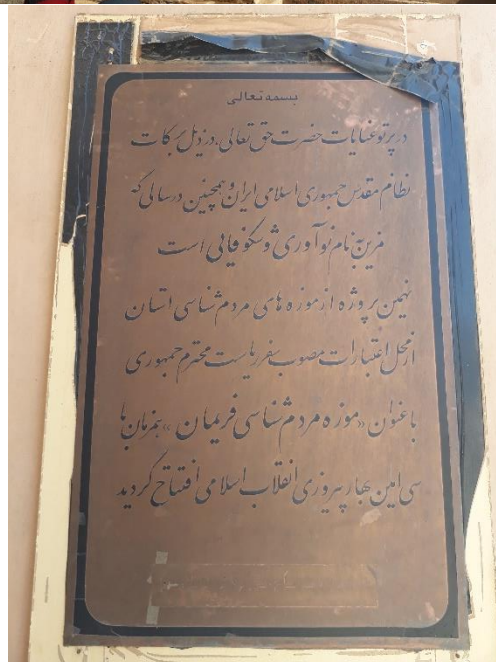 بسمه تعالی
در پرتو عنایات حضرت حق تعالی، در ذیل برکات
نظام مقدس جمهوری اسلامی ایران و همچنین در سالی که
مزین به نام نوآوری و شکوفایی است
نهمین پروژه از موزه های مردم شناسی استان
از محل اعتبارات مصوب سفر ریاست محترم جمهوری
با عنوان «موزه مردم شناسی فریمان» همزمان با
سی امین بهار پیروزی انقلاب اسلامی افتتاح گردید